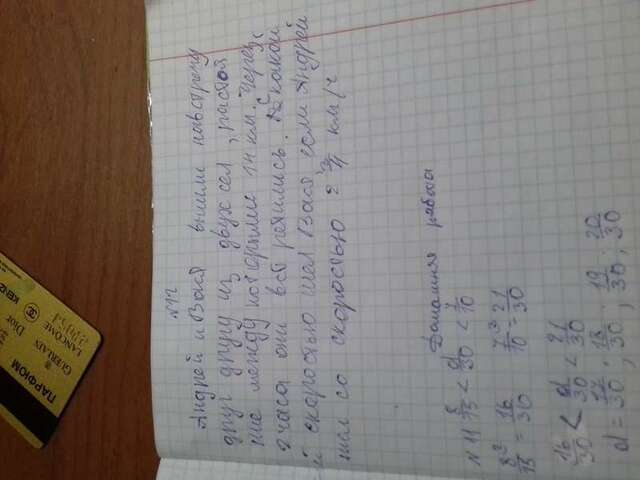 №12
Андрей и Вася вышли навстречу
друг другу из двух сел, расстоя
ние между которыми 14 км. Через
2 часа они встретились. С какой
скоростью шел Вася если Андрей
шел со скоростью 2 3/4 км/ч
Домашняя работа
№11 8/15 < d/30 < 7/10
8²/15 = 16/30 7³/10 = 21/30
16/30 < d/30 < 21/30
d = 17/30; 18/30; 19/30; 20/30
ПАРФЮМ
GUERLAIN
Dior
LANCOME
KENZO